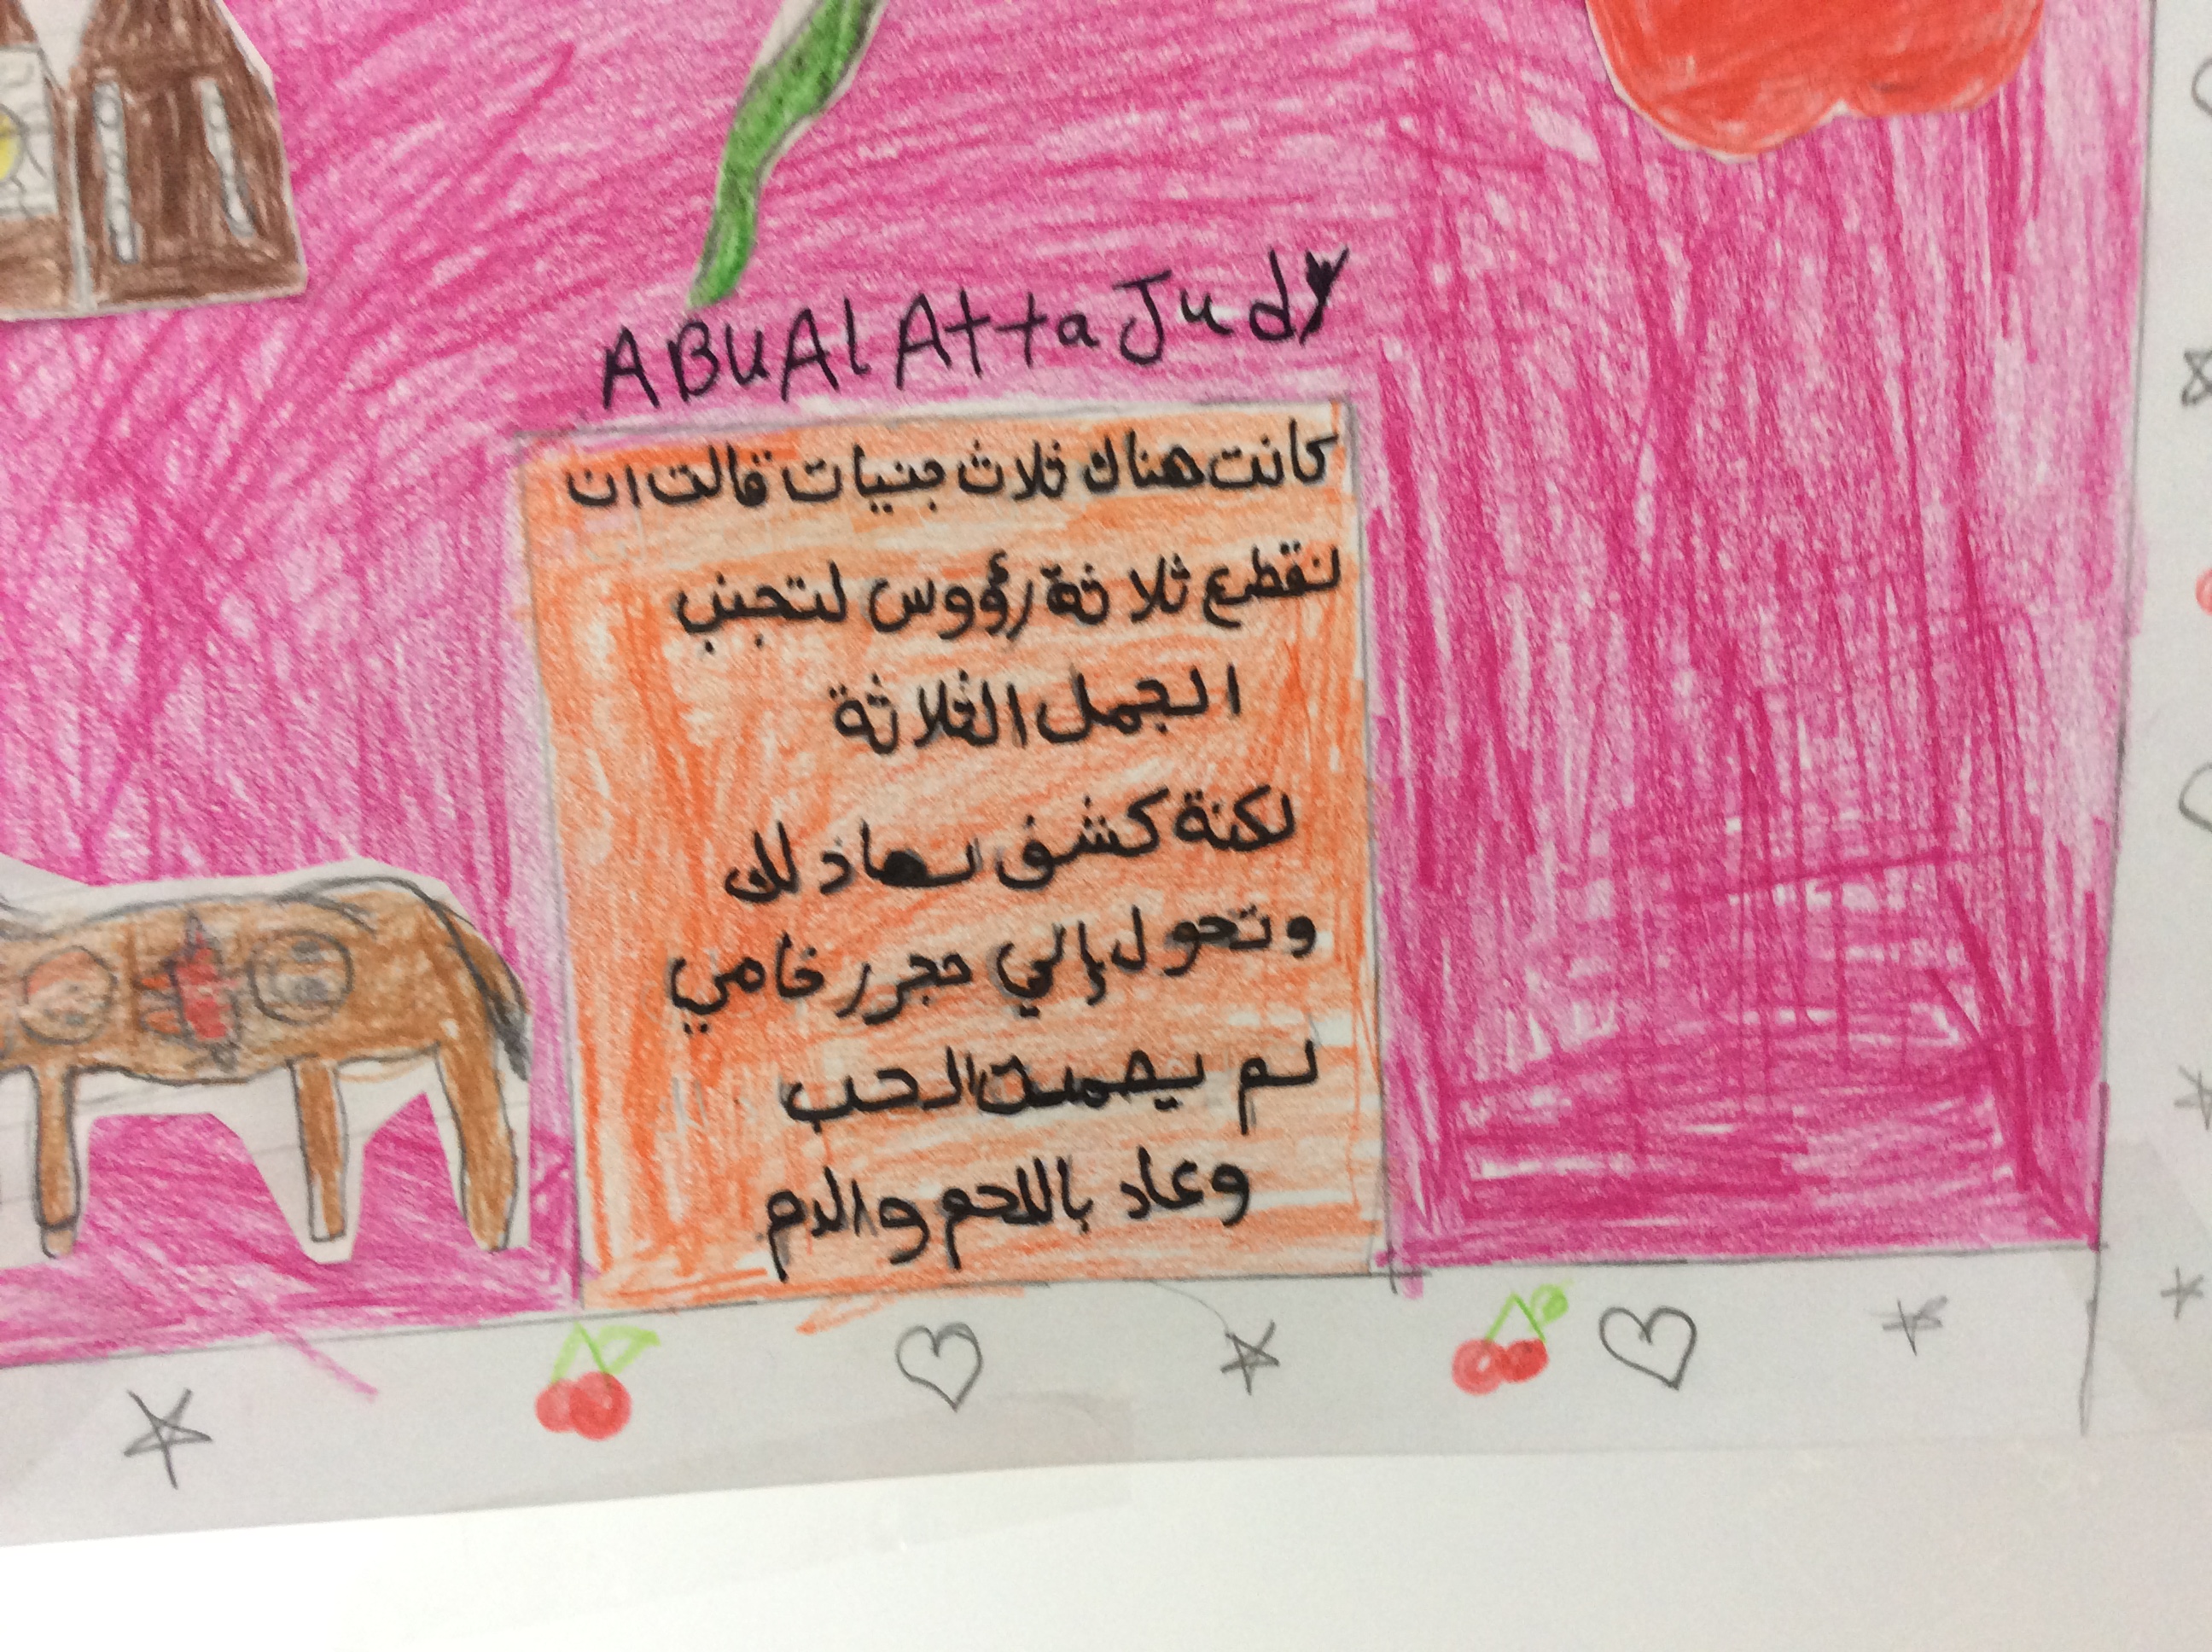 ABUAl Atta Judy
كانت هناك ثلاث جنيات قالت ان
نقطع ثلاثة رؤوس لتجنب
الجمل الثلاثة
لكنة كشف لها ذلك
وتحول إلي حجر رخامي
لم يصمت الحب
وعاد باللحم والدم